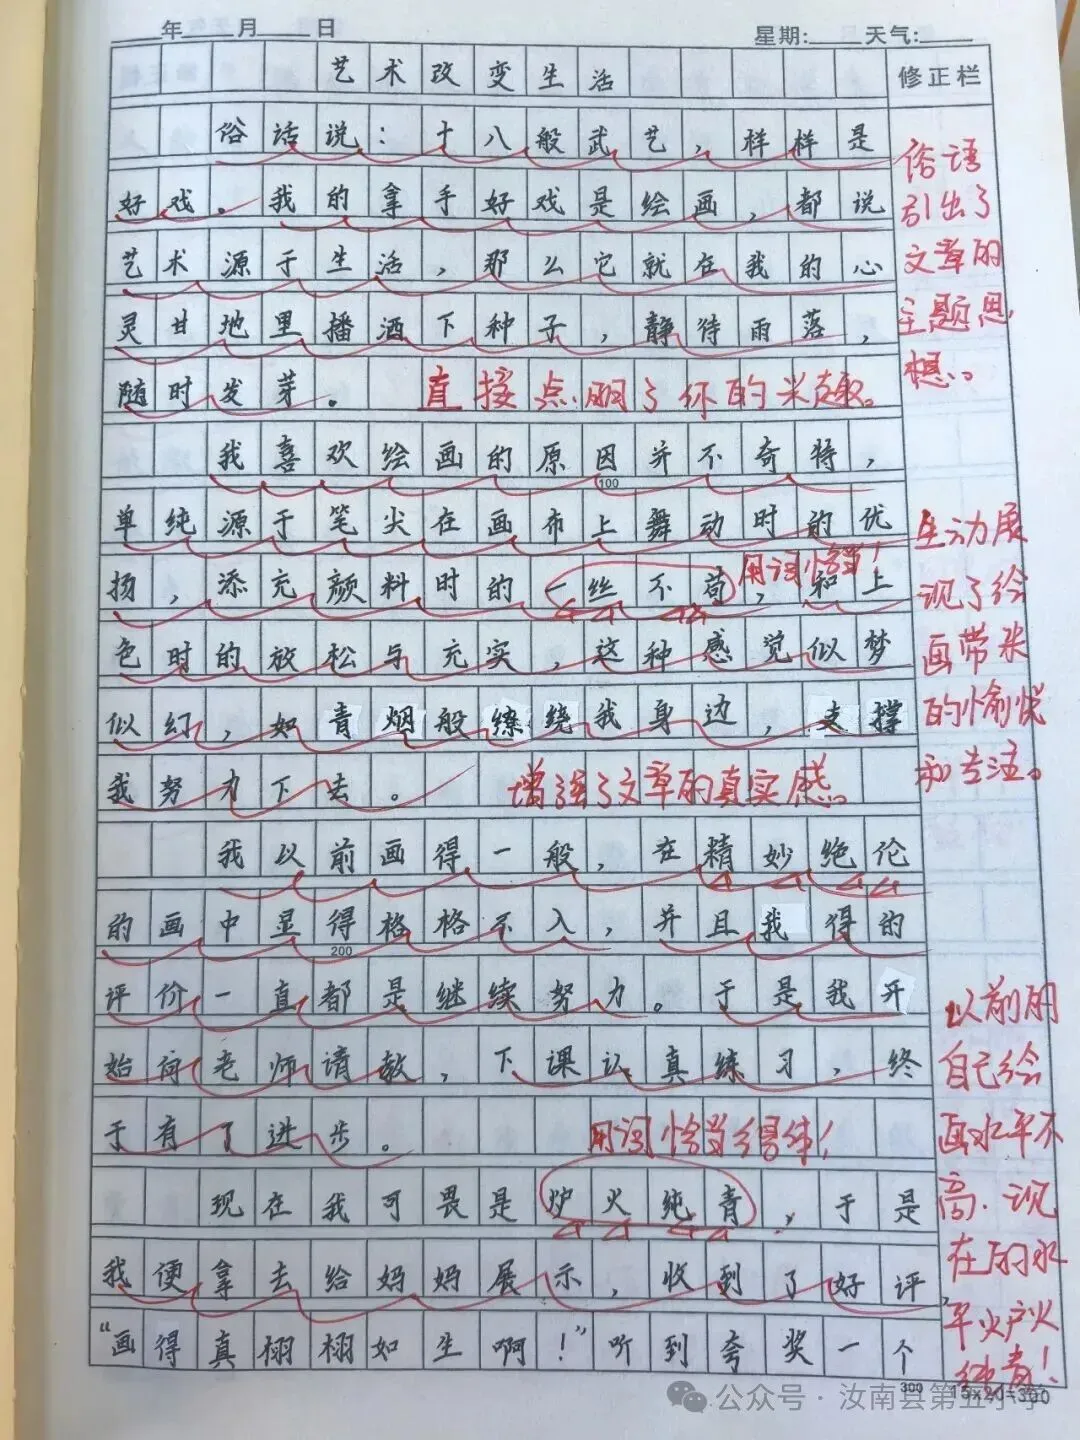 ____年____月____日 星期:____天气:____
艺术改变生活
修正栏
俗话说：十八般武艺，样样是
好戏。我的拿手好戏是绘画，都说
艺术源于生活，那么它就在我的心
灵甘地里播洒下种子，静待雨落，
随时发芽。
直接点明了你的兴趣。
我喜欢绘画的原因并不奇特，
100
单纯源于笔尖在画布上舞动时的优
扬，添充颜料时的一丝不苟，和上
用词恰当！
色时的放松与充实，这种感觉似梦
似幻，如青烟般缭绕我身边，支撑
我努力下去。
增强了文章的真实感。
我以前画得一般，在精妙绝伦
的画中显得格格不入，并且我得的
200
评价一直都是继续努力。于是我开
始向老师请教，下课认真练习，终
于有了进步。
用词恰当得体！
现在我可畏是炉火纯青，于是
我便拿去给妈妈展示，收到了好评，
“画得真栩栩如生啊！”听到夸奖一个
300
15×20=300
俗语
引出了
文章的
主题思
想。
生动展
现了绘
画带来
的愉悦
和专注。
以前的
自己绘
画水平不
高，现
在的水
平火炉火
纯青！
公众号·汝南县第五小学